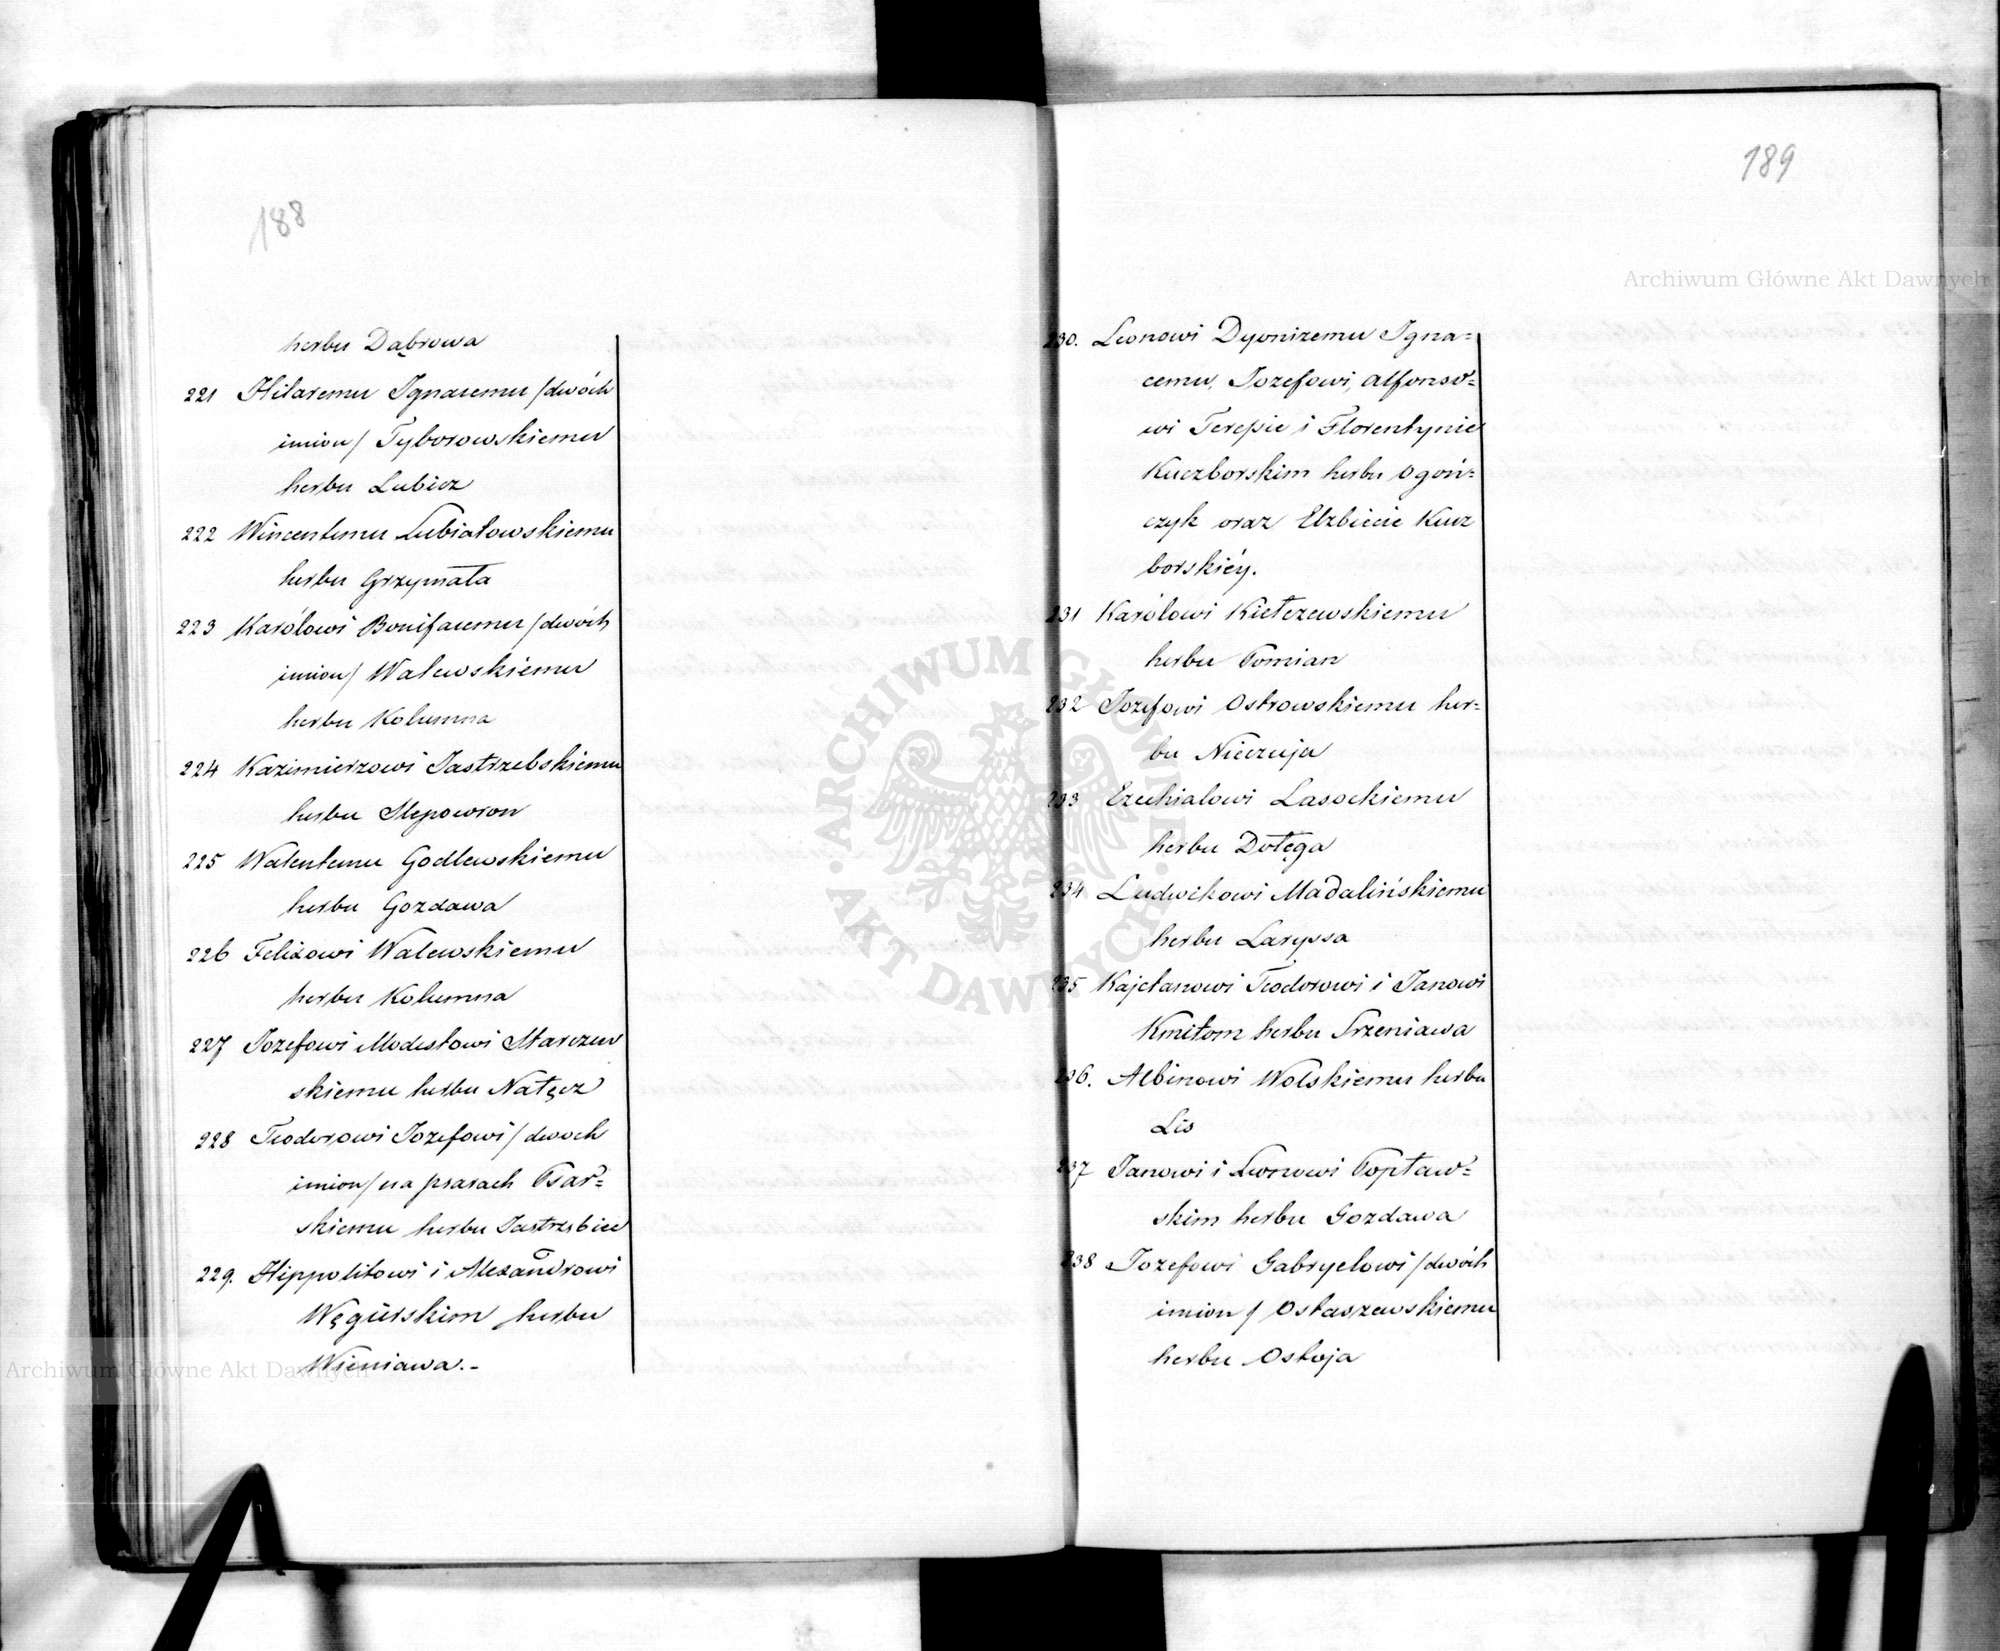 188
herbu Dąbrowa
221 Hilaremu Ignacemu /dwóch
imion/ Tyborowskiemu
herbu Lubicz
222 Wincentemu Lubiatowskiemu
herbu Grzymała
223 Karólowi Bonifacemu /dwóch
imion/ Walewskiemu
herbu Kolumna
224 Kazimierzowi Jastrzebskiemu
herbu Slepowron
225 Walentemu Godlewskiemu
herbu Gozdawa
226 Felixowi Walewskiemu
herbu Kolumna
227 Jozefowi Modestowi Starzew
skiemu herbu Nałęcz
228 Teodorowi Jozefowi /dwoch
imion/ na psarach Psar=
skiemu herbu Jastrzębiec
229. Hippolitowi i Alexandrowi
Węgierskim herbu
Wieniawa.-
189
230. Leonowi Dyonizemu Igna=
cemu, Jozefowi, Alfonso=
wi Teressie i Florentynie
Kuczborskim herbu Ogoń=
czyk oraz Elzbiecie Kucz
borskiéy.
231 Karólowi Kiełczewskiemu
herbu Pomian
232 Jozefowi Ostrowskiemu her=
bu Nieczuja
233 Ezechialowi Lasockiemu
herbu Dołęga
234 Ludwikowi Madalińskiemu
herbu Laryssa
235 Kajetanowi Teodorowi i Janowi
Kmitom herbu Srzeniawa
236. Albinowi Wolskiemu herbu
Lis
237 Janowi i Leonowi Popław=
skim herbu Gozdawa
238 Jozefowi Gabryelowi /dwóch
imion/ Ostaszewskiemu
herbu Ostoja
Archiwum Główne Akt Dawnych
ARCHIWUM GŁÓWNE AKT DAWNYCH
Archiwum Główne Akt Dawnych